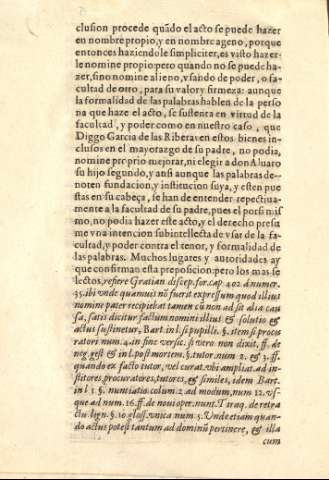 clusion procede quãdo el acto se puede hazer
en nombre propio, y en nombre ageno, porque
entonces haziendole simpliciter, es visto hazer-
le nomine propio: pero quando no se puede ha-
zer, sino nomine alieno, vsando de poder, o fa-
cultad de otro, para su valor y firmeza: aunque
la formalidad de las palabras hablen de la perso
na que haze el acto, se sustenta en virtud de la
facultad, y poder como en nuestro caso, que
Diggo Garcia de las Ribera en estos bienes in-
clusos en el mayorazgo de su padre, no podia,
nomine proprio mejorar, ni elegir a don Aluaro
su hijo segundo, y ansi aunque las palabras de-
noten fundacion, y institucion suya, y esten pue
stas en su cabeça, se han de entender repectiua-
mente a la facultad de su padre, pues el por si mis
mo, no podia hazer este acto, y el derecho presu
me vna intencion subintellecta de vsar de la fa-
cultad, y poder contra el tenor, y formalidad de
las palabras. Muchos lugares y autoridades ay
que confirman esta preposicion: pero los mas se
lectos, refiere Gratian discep. for. cap. 402. à numer.
35. ibi vnde quamuis nõ fuerit expressum quod illius
nomine pater recipiebat tamen cũ non ad sit alia cau
sa, satis dicitur factum nomini illius & solutio &
actus sustinetur, Bart. in l. si pupilli. §. item si procu
ratori num. 4. in fine versic. si vero non dixit, ff. de
neg. gest & in l. post mortem. §. tutor num. 2. & 3. ff.
quando ex facto tutor, vel curat. vbi ampliat. ad in-
stitores, procuratores, tutores, & similes, idem Bart.
in l. 3 §. nuntiatio colum. 2. ad modum, num 12. vs-
que ad num. 16. ff. de noui oper. nunt. Tiraq. de retra
ctu lign. §. 10 gloss. vnica num 5. Vnde etiam quan-
do actus potest tantum ad dominũ pertinere, & illa
cum